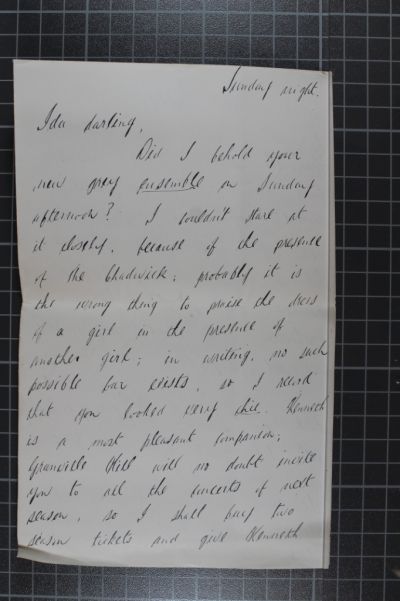 Sunday night.
Ida darling,
Did I behold your
new grey ensemble on Sunday
afternoon? I couldn't stare at
it closely, because of the presence
of the Chadwick; probably it is
the wrong thing to praise the dress
of a girl in the presence of
another girl; in writing, no such
possible bar exists, so I record
that you looked very chic. Kenneth
is a most pleasant companion;
Granville Hill will no doubt invite
you to all the concerts of next
season, so I shall buy two
season tickets and give Kenneth